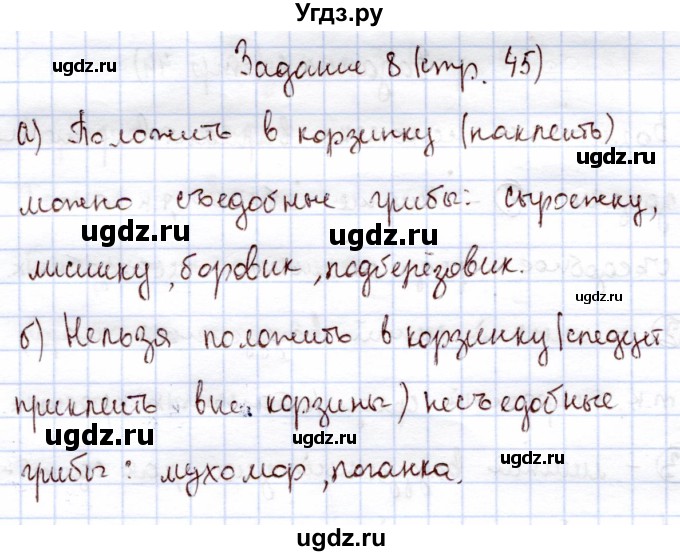 Угдз.ру
Задание 8 (стр. 45)
ugdz.ru ugdz.ru
а) Положить в корзинку (наклеить)
ugdz.ru
можно съедобные грибы: сыроежку,
ugdz.ru ugdz.ru
лисичку, боровик, подберёзовик.
ugdz.ru
б) Нельзя положить в корзинку (следует
ugdz.ru ugdz.ru
приклеить вне корзины) несъедобные
ugdz.ru ugdz.ru ugdz.ru
грибы: мухомор, поганка.
ugdz.ru